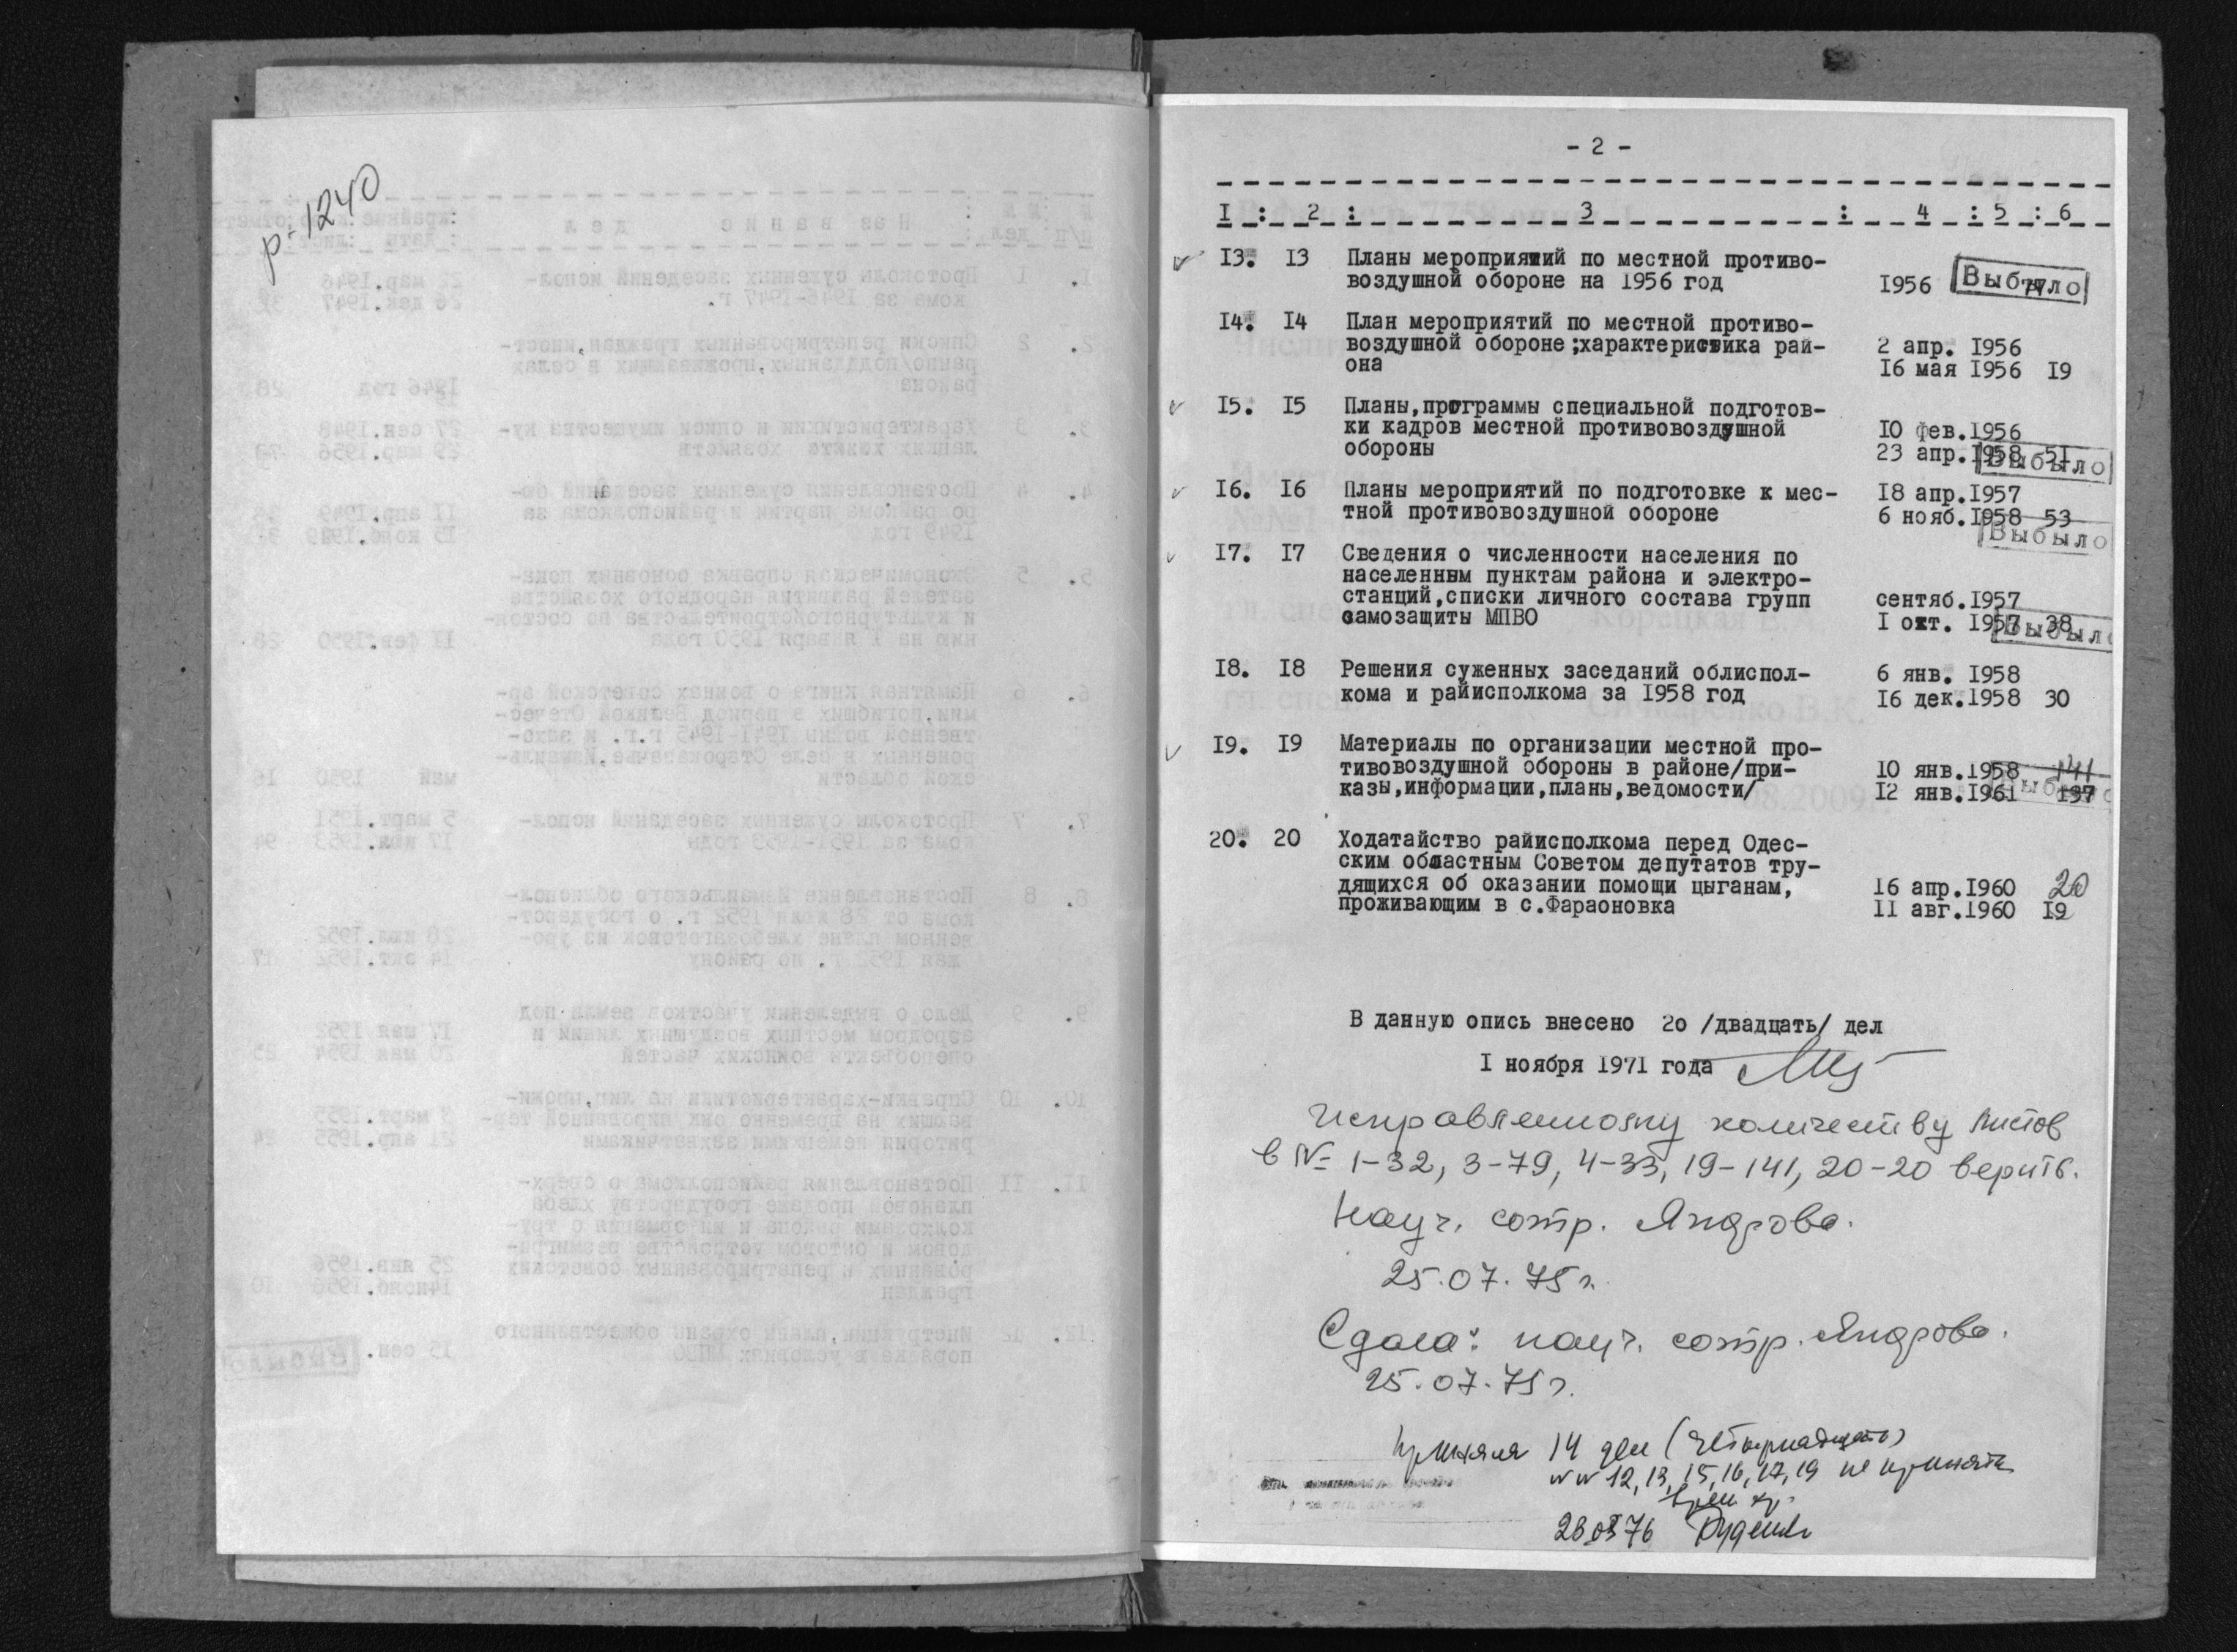 р-1240
- 2 -
I : 2 : 3 : 4 : 5 : 6
I3. I3 Планы мероприятий по местной противо-
воздушной обороне на 1956 год I956 77 Выбыло
I4. I4 План мероприятий по местной противо-
воздушной обороне;характеристика рай- 2 апр. I956
она I6 мая I956 I9
I5. I5 Планы,программы специальной подготов-
ки кадров местной противовоздушной I0 фев.I956
обороны 23 апр.I958 51 Выбыло
I6. I6 Планы мероприятий по подготовке к мес- I8 апр.I957
тной противовоздушной обороне 6 нояб.I958 53
Выбыло
I7. I7 Сведения о численности населения по
населенным пунктам района и электро-
станций,списки личного состава групп сентяб.I957
самозащиты МПВО I окт. I957 38 Выбыло
I8. I8 Решения суженных заседаний облиспол- 6 янв. I958
кома и райисполкома за 1958 год I6 дек.I958 30
I9. I9 Материалы по организации местной про-
тивовоздушной обороны в районе/при- I0 янв.I958 141
казы,информации,планы,ведомости/ I2 янв.I961 137 Выбыло
20. 20 Ходатайство райисполкома перед Одес-
ским областным Советом депутатов тру-
дящихся об оказании помощи цыганам, I6 апр.I960 20
проживающим в с.Фараоновка II авг.I960 I9
В данную опись внесено 2о /двадцать/ дел
I ноября 1971 года
Исправленному количеству листов
в № 1-32, 3-79, 4-33, 19-141, 20-20 верить.
Науч. сотр. Яндрова.
25.07.75 г.
Сдала: науч. сотр. Яндрова.
25.07.75 г.
Приняла 14 дел (четырнадцать)
№№ 12, 13, 15, 16, 17, 19 не приняты